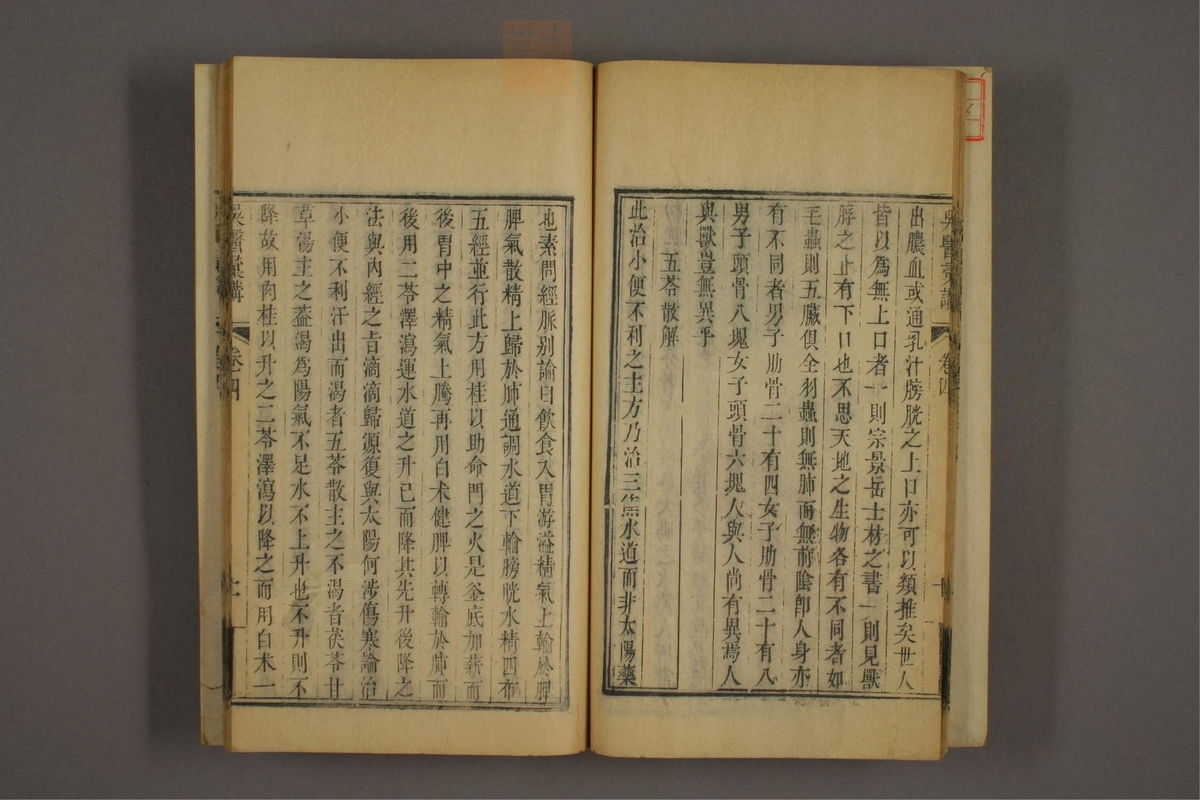 吳醫彙講
卷四
出膿血或通乳汁膀胱之上口亦可以類推矣世人
皆以為無上口者一則宗景岳士材之書一則見獸
脬之止有下口也不思天地之生物各有不同者如
毛蟲則五臟俱全羽蟲則無肺而無前陰即人身亦
有不同者男子肋骨二十有四女子肋骨二十有八
男子頭骨八塊女子頭骨六塊人與人尚有異焉人
與獸豈無異乎
五苓散解
此治小便不利之主方乃治三焦水道而非太陽藥
也素問經脈别論曰飲食入胃游溢精氣上輸於脾
脾氣散精上歸於肺通調水道下輸膀胱水精四布
五經並行此方用桂以助命門之火是釜底加薪而
後胃中之精氣上騰再用白术健脾以轉輸於肺而
後用二苓澤瀉運水道之升已而降其先升後降之
法與內經之旨滴滴歸源復與太陽何涉傷寒論治
小便不利汗出而渴者五苓散主之不渴者茯苓甘
草湯主之蓋渴為陽氣不足水不上升也不升則不
降故用肉桂以升之二苓澤瀉以降之而用白术一
吳醫彙講
卷四